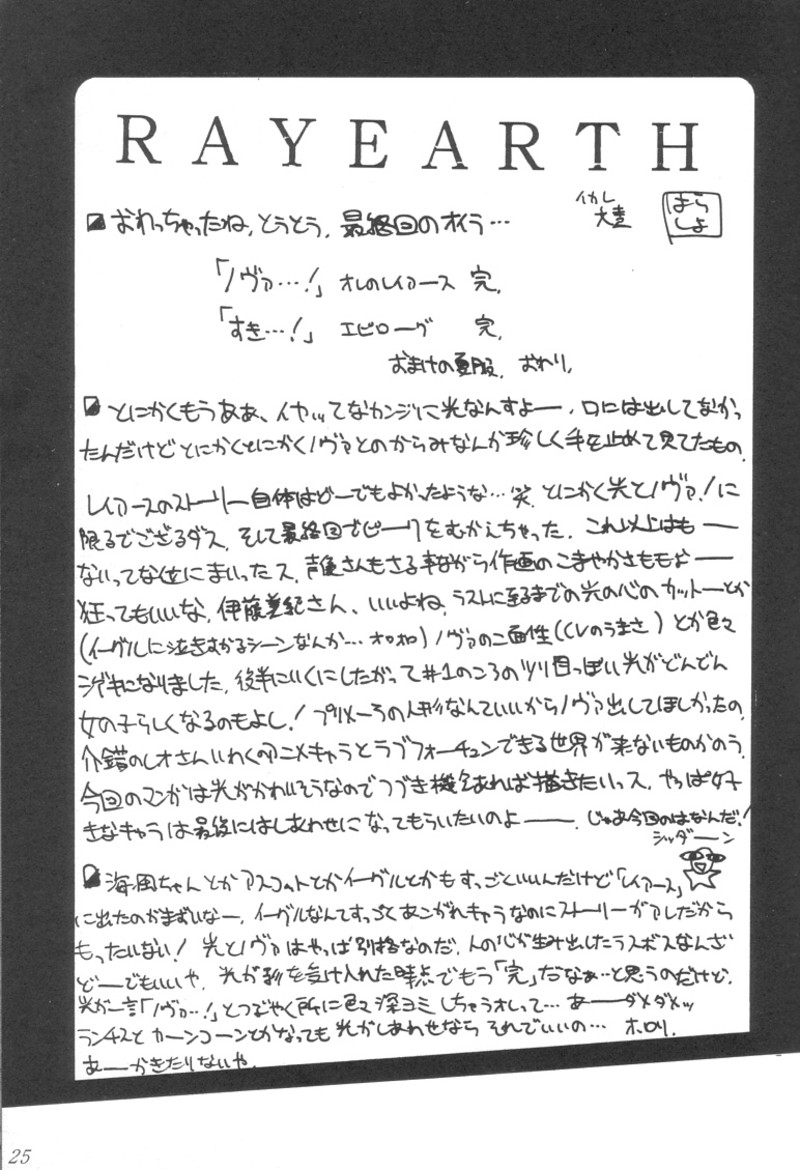 RAYEARTH
イカレ大王
はらしょ
おわっちゃったね、とうとう、最終回のオイラ…
「ノヴァ…!」 オレのレイアース 完、
「すき…!」 エピローグ 完、
おまけの夏服、おわり、
とにかくもうああ、イヤッってなカンジに光なんすよー、口には出してなかっ
たんだけどとにかくとにかくノヴァとのからみなんか珍しく手を止めて見てたもの、
レイアースのストーリー自体はどーでもよかったような…笑、とにかく光とノヴァ!に
限るでござるダス、そして最終回でピークをむかえちゃった、これ以上はもー
ないってな位にまいったス、声優さんもさる事ながら作画のこまやかさももぉー
狂ってもいいな、伊藤美紀さん、いいよね、ラストに至るまでの光の心のカットーとか
(イーグルに泣きむかるシーンなんか… オロオロ)ノヴァの二面性(CVのうまさ)とか色々
シゲキになりました、後半にいくにしたがって#1のころのツリ目っぽい光がどんどん
女の子らしくなるのもよし!プリメーラの人形なんていいからノヴァ出してほしかったの、
介錯のしオさんいわくのアニメキャラとラブフォーチュンできる世界が来ないものかのう、
今回のマンガは光がかわいそうなのでつづき機会あれば描きたいっス、やっぱ好
きなキャラは最後にはしあわせになってもらいたいのよー、じゃあ今回のはなんだ!
シッダーン
海風ちゃんとかアスコットとかイーグルとかもすっごといいんだけど「レイアース」
に出たのがまずいなー、イーグルなんてすっごくあこがれキャラなのにストーリーがアレだから
もったいない! 光とノヴァはやっぱ別格なのだ、人の心が生み出したラスボスなんざ
どーでもいいや、光が影を受け入れた時点でもう「完」だなぁ…と思うのだけど、
光が一言「ノヴァ…!」とつぶやく所に色々深ヨミしちゃうオレって… あーダメダメッ
ランチスと カーンコーンとかなっても 光がしあわせなら それでいいの… ホロリ、
あーかきたりないや、
25